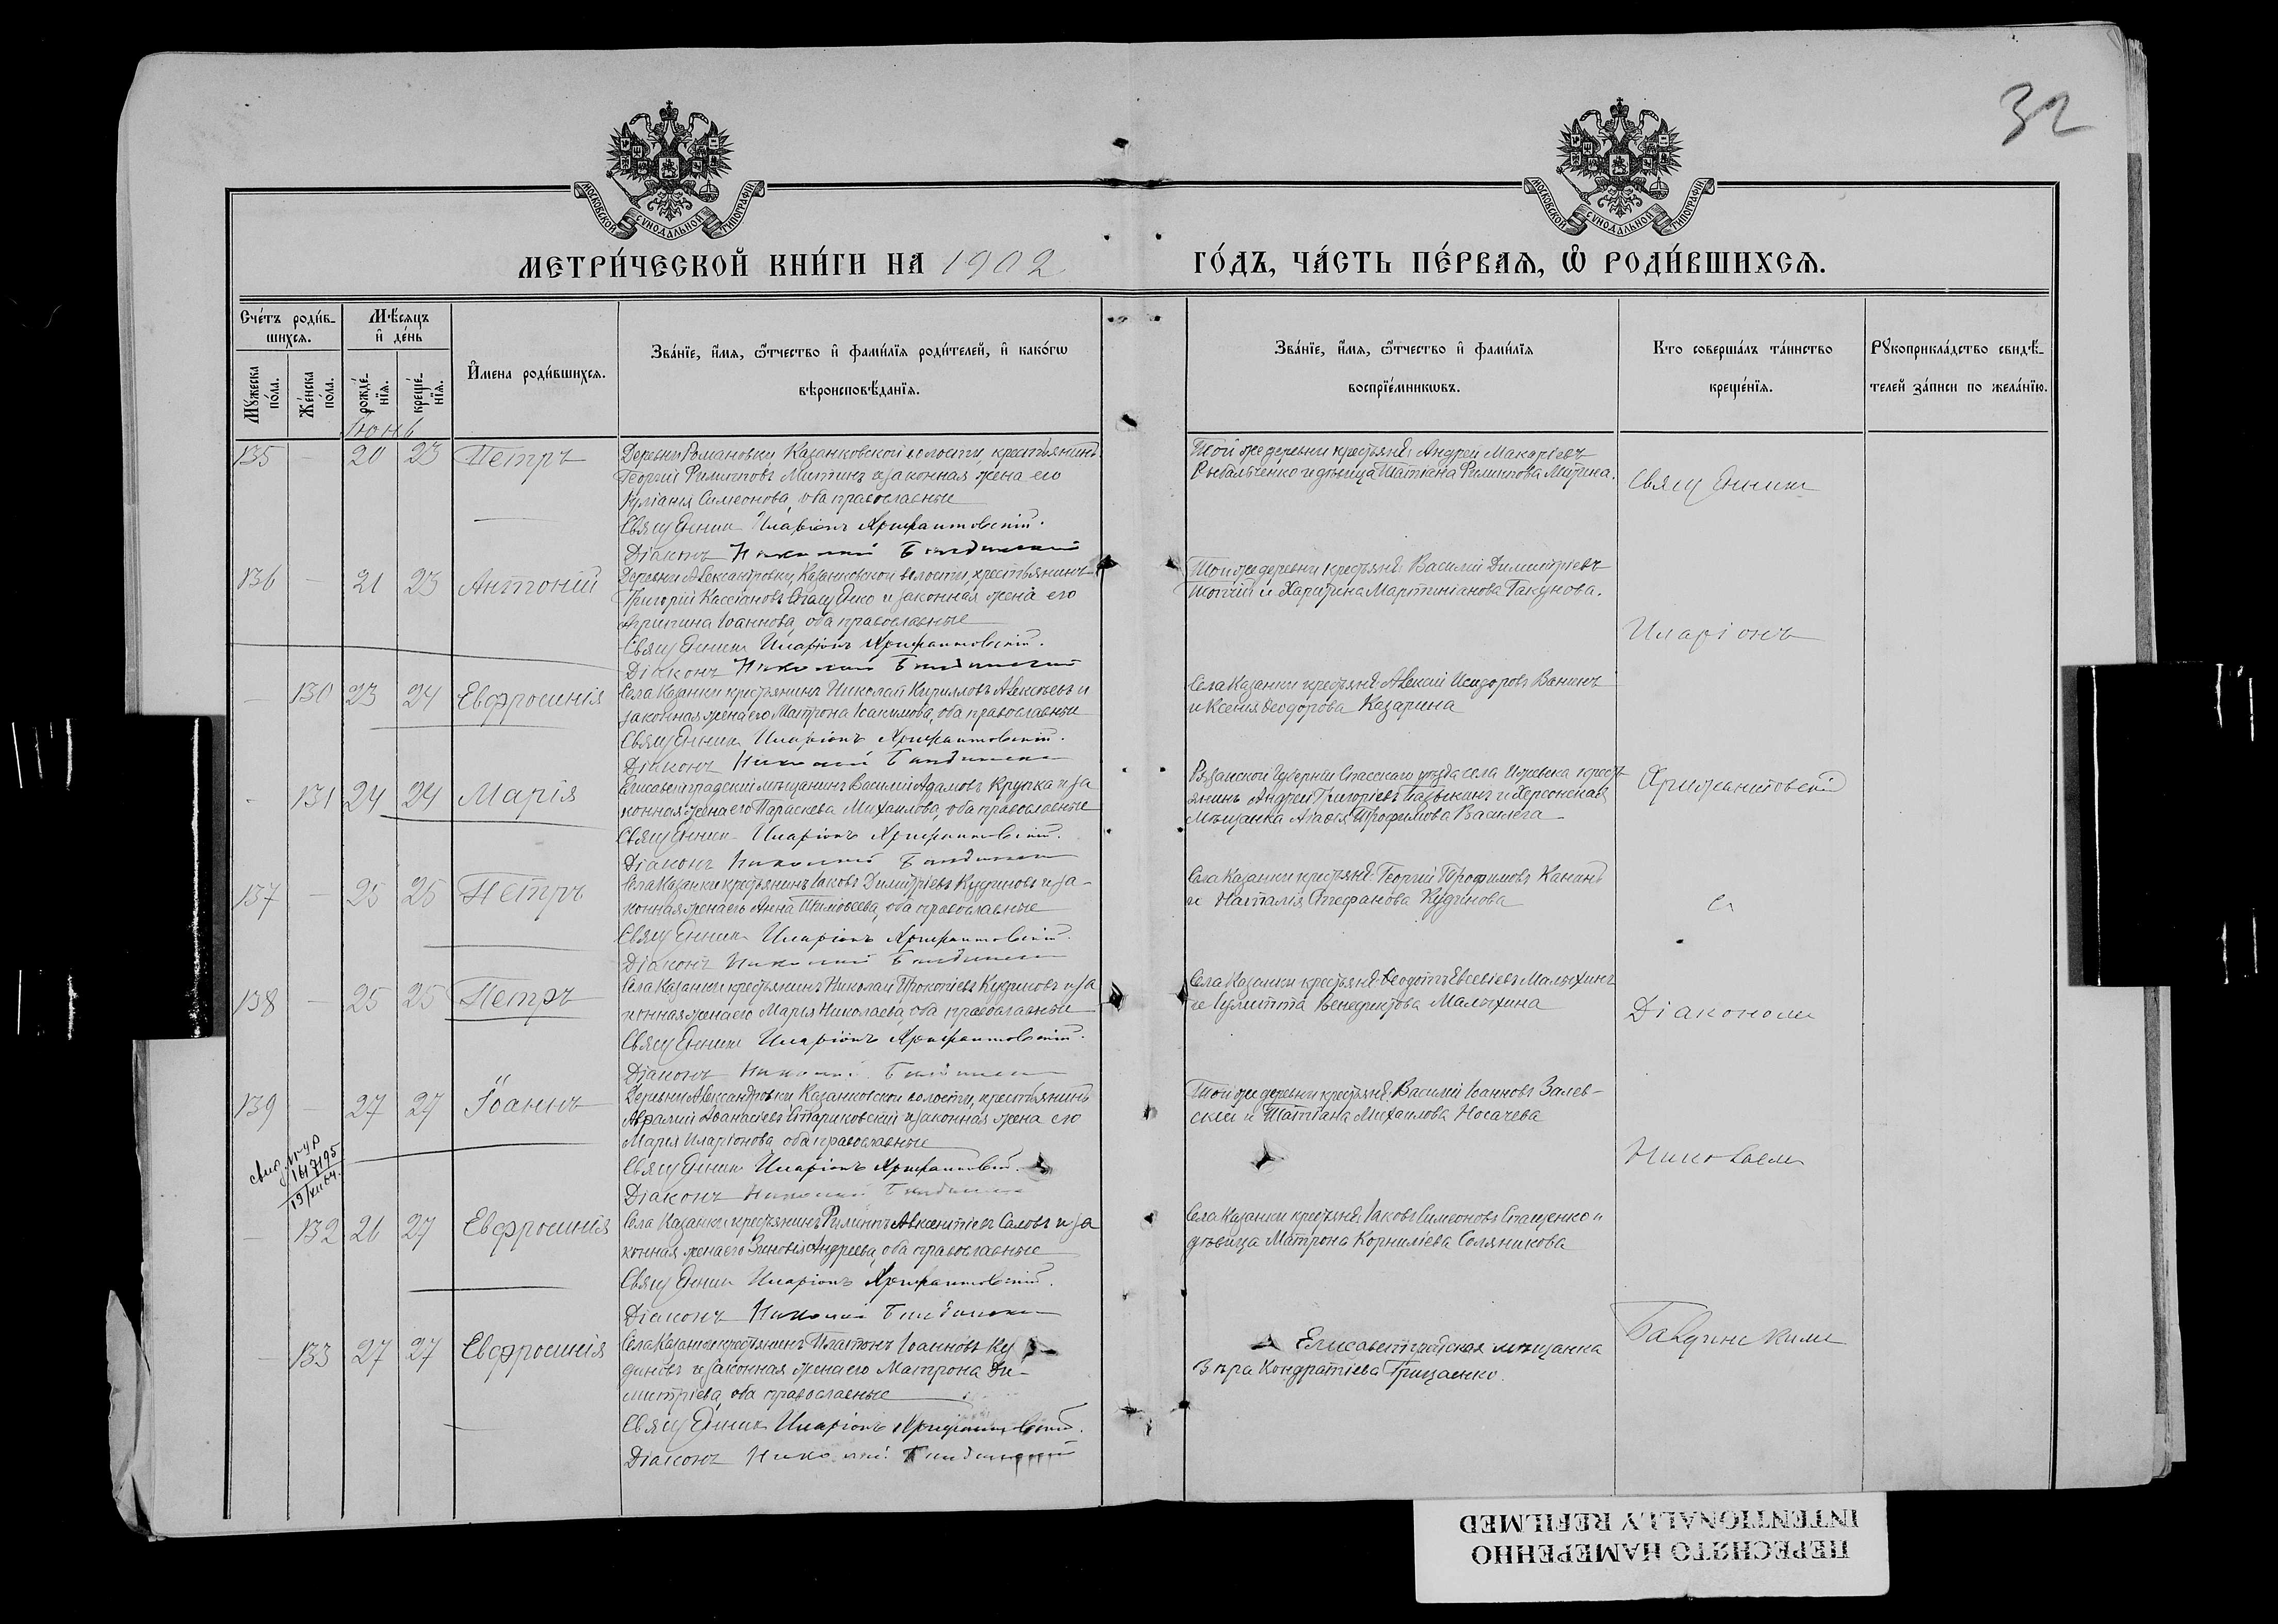 32
МОСКОВСКОЙ СѴНОДАЛЬНОЙ ТИПОГРАФІИ
МОСКОВСКОЙ СѴНОДАЛЬНОЙ ТИПОГРАФІИ
МЕТРИ́ЧЕСКОЙ КНИ́ГИ НА 1902 ГО́ДЪ, ЧА́СТЬ ПЕ́РВАѦ, Ѡ РОДИ́ВШИХСѦ.
Сче́тъ роди́в-
шихсѧ.
Мѣ́сѧцъ
и҆ де́нь
Мꙋ́жеска
по́ла.
Же́нска
по́ла.
рожде́-
нїѧ.
креще́-
нїѧ.
И҆мена роди́вшихсѧ.
Зва́нїе, и҆́мѧ, ѻ҆́тчество и҆ фами́лїѧ роди́телей, и҆ како́гѡ
вѣроисповѣ́данїѧ.
Зва́нїе, и҆́мѧ, ѻ҆́тчество и҆ фами́лїѧ
воспрїе́мникѡвъ.
Кто соверша́лъ та́инство
креще́нїѧ.
Рꙋкоприкла́дство свидѣ́-
телей за́писи по жела́нїю.
Іюнь
135 — 20 23 Петръ
Деревни Романовки Казанковской волости, крестьянинъ
Георгій Филипповъ Митинъ и законная жена его
Іуліанія Симеонова, оба православные
Священникъ Иларіонъ Хрисантовскій.
Діаконъ Николай
Той же деревни крестьяне Андрей Макаріевъ
Рыбальченко и дѣвица Татіана Филиппова Митина.
136 — 21 23 Антоній
Деревни Александровки, Казанковской волости, крестьянинъ
Григорій Кассіановъ Стащенко и законная жена его
Агрипина Іоаннова, оба православные
Священникъ Иларіонъ Хрисантовскій.
Діаконъ Николай
Той же деревни крестьяне Василій Димитріевъ
и Харитина Мартиніанова Гакунова.
— 130 23 24 Евфросинія
Села Казанки крестьянинъ Николай Кирилловъ Алексѣевъ и
законная жена его Матрона Іоакимова, оба православные
Священникъ Иларіонъ Хрисантовскій.
Діаконъ Николай
Села Казанки крестьяне Алексій Исидоровъ Ванинъ
и Ксенія Ѳеодорова Казарина
- 131 24 24 Марія
Елисаветградскій мѣщанинъ Василій Адамовъ Крупка и за
конная жена его Параскева Михаилова, оба православные
Священникъ Иларіонъ Хрисантовскій.
Діаконъ Николай
Рязанской Губерніи Спасскаго уѣзда села Ижевска кресть
янинъ Андрей Григоріевъ и Херсонская
мѣщанка Трофимова
137 — 25 25 Петръ
Села Казанки крестьянинъ Іаковъ Димитріевъ Кудиновъ и за-
конная жена его Анна Тимоѳеева, оба православные
Священникъ Иларіонъ Хрисантовскій.
Діаконъ Николай
Села Казанки крестьяне Георгій Трофимовъ Канинъ
и Наталія Стефанова Кудинова
138 — 25 25 Петръ
Села Казанки крестьянинъ Николай Прокопіевъ Кудиновъ и за
конная жена его Марья Николаева, оба православные
Священникъ Иларіонъ Хрисантовскій.
Діаконъ Николай
Села Казанки крестьяне Ѳеодотъ Евсевіевъ Малыхинъ
и Іулитта Венедиктова Малыхина
139 27 27 Іоаннъ
Деревни Александровки Казанковской волости, крестьянинъ
Аѳанасіевъ Стариковскій и законная жена его
Марія Иларіонова оба православные
Священникъ Иларіонъ
Діаконъ Николай
Той же деревни крестьяне Василій Іоанновъ Залев-
скій и Татіана Михаилова Носачева
— 132 26 27 Евфросинія
Села Казанки крестьянинъ Филиппъ Авксентіевъ Саловъ и за
конная жена его Зиновія Андреева, оба православные
Священникъ Иларіонъ Хрисантовскій.
Діаконъ Николай
Села Казанки крестьяне Іаковъ Симеоновъ Стащенко и
дѣвица Матрона Корниліева Солянникова
— 133 27 27 Евфросинія
Села Казанки крестьянинъ Платонъ Іоанновъ Ку
диновъ и законная жена его Матрона Ди-
митріева, оба православные
Священникъ Иларіонъ
Діаконъ Николай
Елисаветградская мѣщанка
Вѣра Кондратіева Грищенко.
Священникъ
Иларіонъ
Хрисантовскій
съ
Діакономъ
Николаемъ
ПЕРЕСНЯТО НАМЕРЕННО
INTENTIONALLY REFILMED